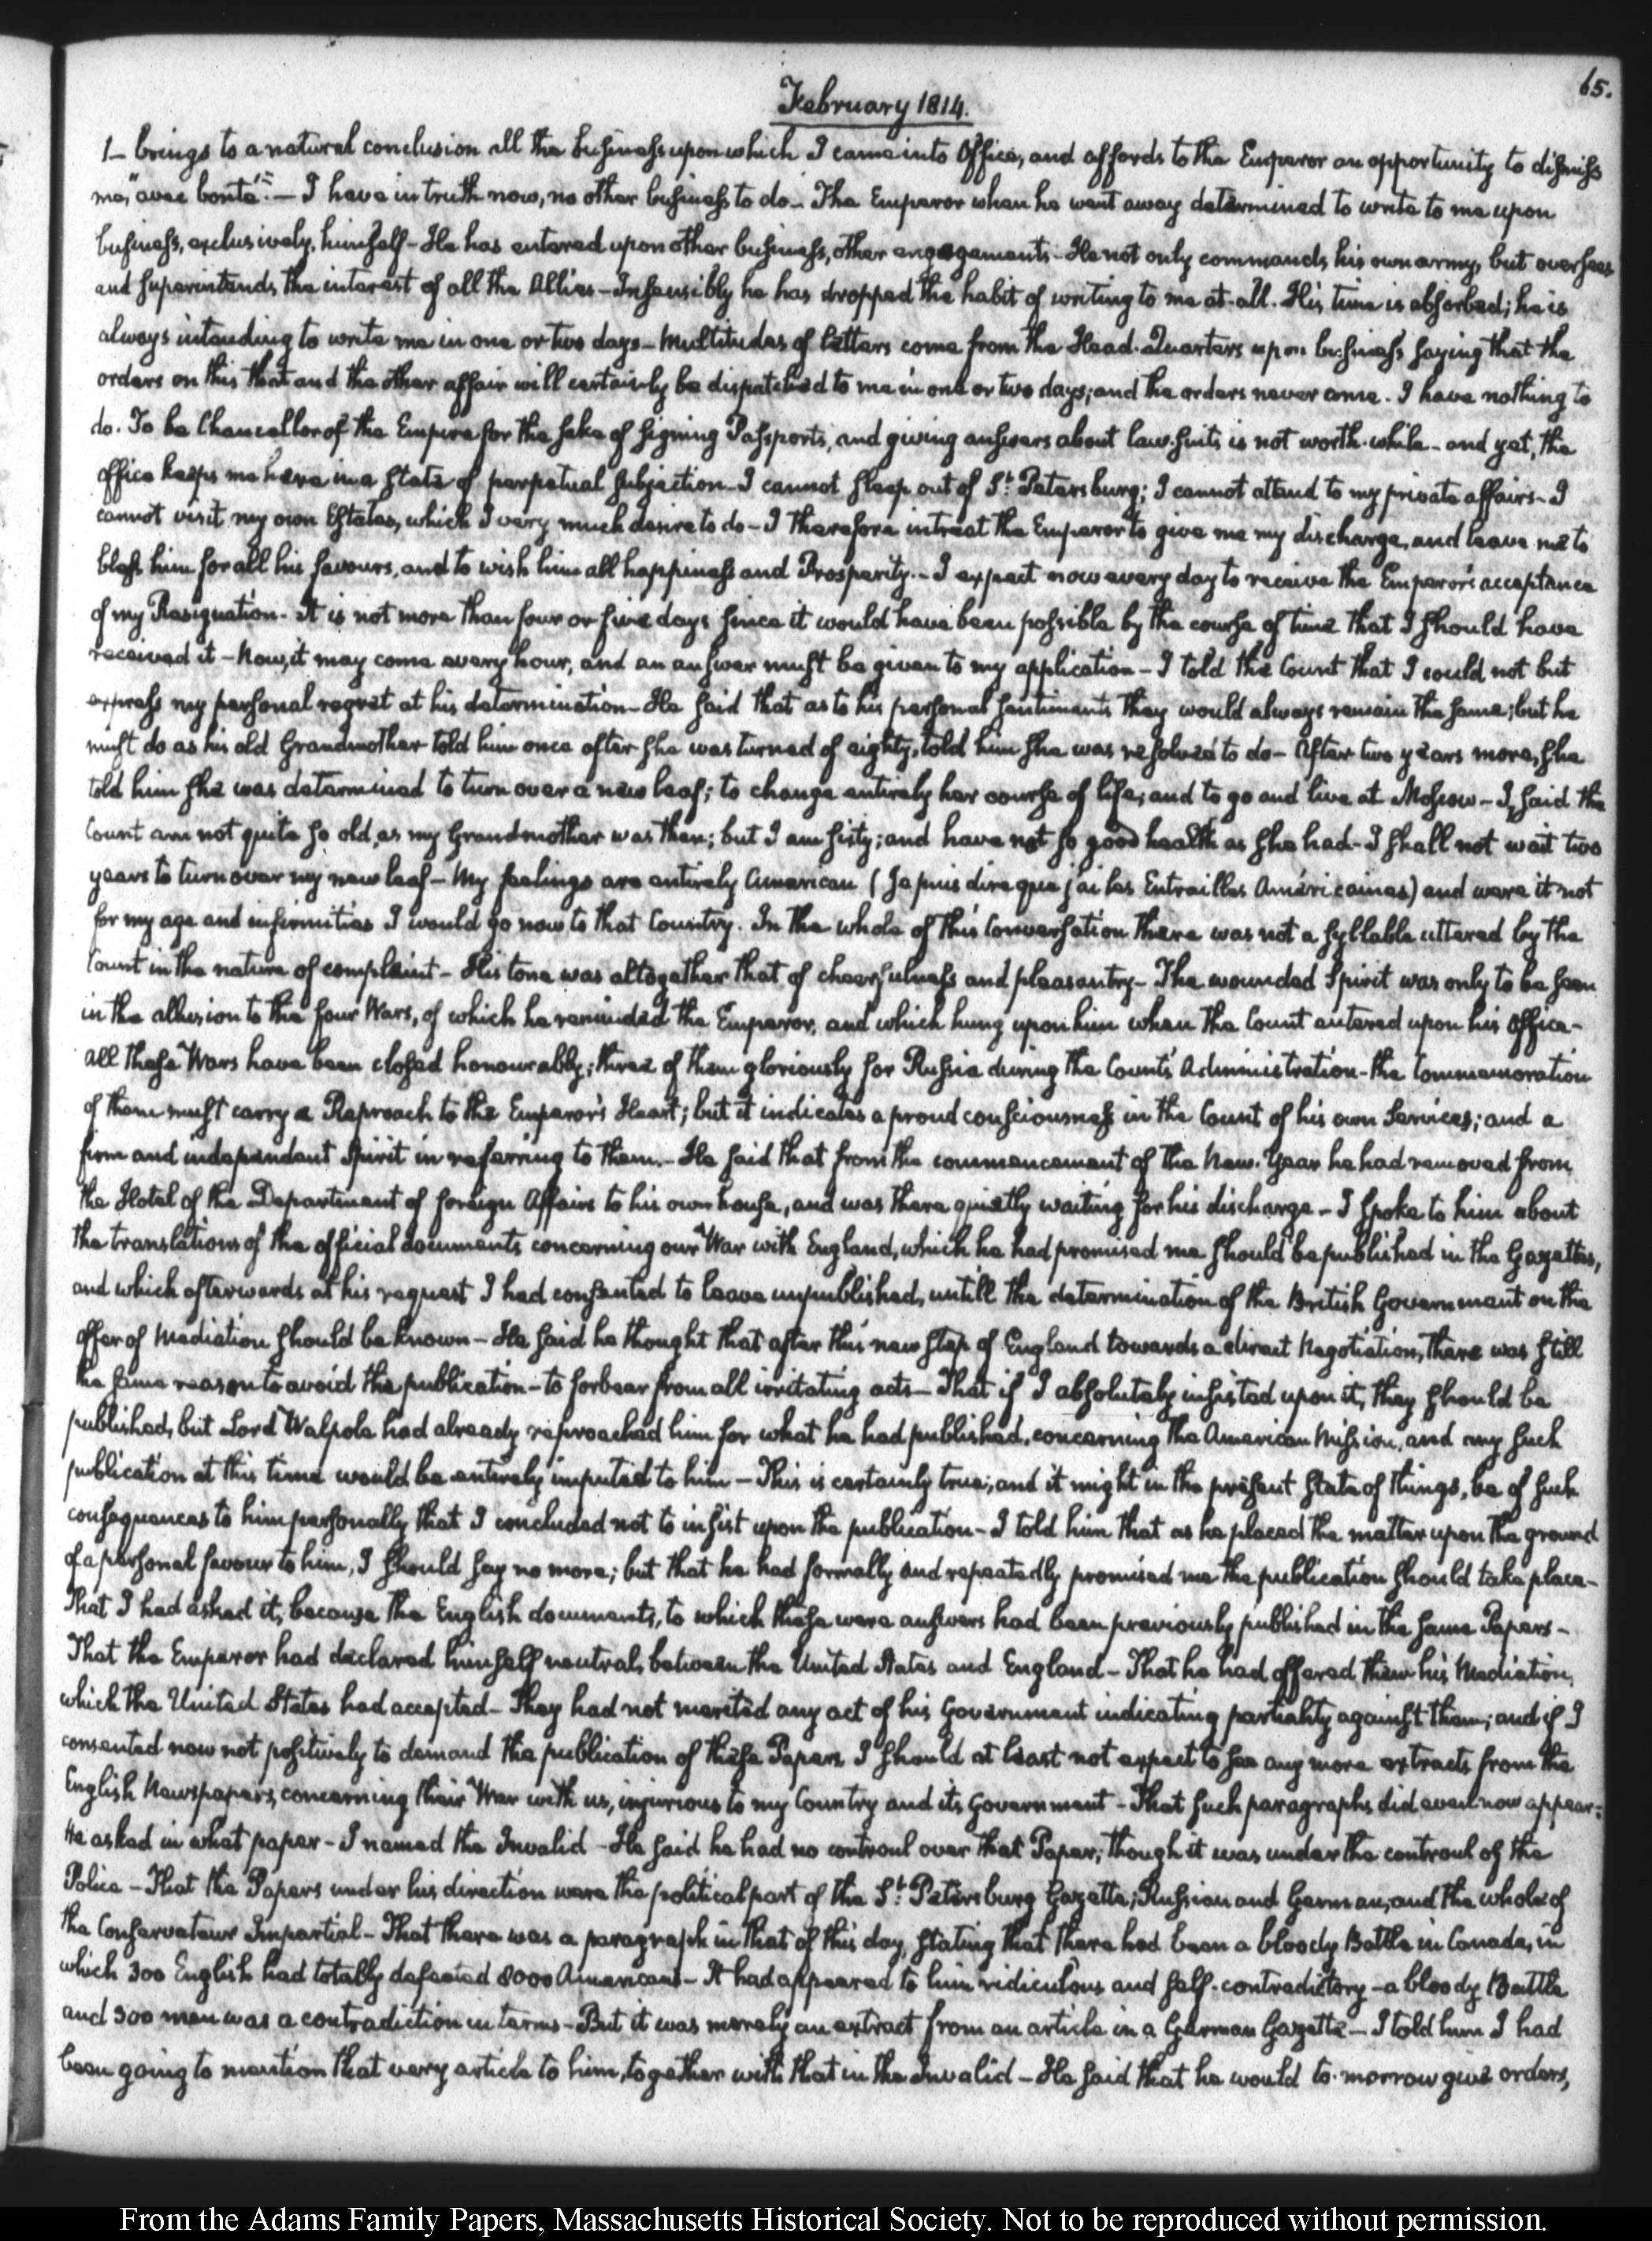 65.
February 1814.
1— brings to a natural conclusion all the business upon which I came into Office, and affords to the Emperor an opportunity to dismiss
me, "avec bonté."— I have in truth now, no other business to do— The Emperor when he went away determined to write to me upon
business, exclusively, himself— He has entered upon other business, other engagements— He not only commands his own army, but oversees
and superintends the interest of all the Allies— Insensibly he has dropped the habit of writing to me at-all. His time is absorbed; he is
always intending to write me in one or two days— Multitudes of letters come from the Head-Quarters upon business saying that the
orders on this that and the other affair will certainly be dispatched to me in one or two days; and the orders never come. I have nothing to
do. To be Chancellor of the Empire for the sake of signing Passports, and giving answers about law-suits is not worth-while— and yet, the
office keeps me here in a state of perpetual subjection— I cannot sleep out of St. Petersburg; I cannot attend to my private affairs— I
cannot visit my own Estates, which I very much desire to do— I therefore intreat the Emperor to give me my discharge, and leave me to
bless him for all his favours, and to wish him all happiness and Prosperity.— I expect now every day to receive the Emperor's acceptance
of my Resignation— It is not more than four or five days since it would have been possible by the course of time that I should have
received it— Now, it may come every hour, and an answer must be given to my application— I told the Count that I could not but
express my personal regret at his determination— He said that as to his personal sentiments they would always remain the same; but he
must do as his old Grandmother told him once after she was turned of eighty, told him she was resolved to do— After two years more, she
told him she was determined to turn over a new leaf; to change entirely her course of life, and to go and live at Moscow— I, said the
Count am not quite so old, as my Grandmother was then; but I am sixty; and have not so good health as she had— I shall not wait two
years to turn over my new leaf— My feelings are entirely American (Je puis dire que j'ai les Entrailles Américaines) and were it not
for my age and infirmities I would go now to that Country. In the whole of this Conversation there was not a syllable uttered by the
Count in the nature of complaint— His tone was altogether that of cheerfulness and pleasantry— The wounded Spirit was only to be seen
in the allusion to the four Wars, of which he reminded the Emperor, and which hung upon him when the Count entered upon his Office—
All these Wars have been closed honourably; three of them gloriously for Russia during the Count's Administration— the Commemoration
of them must carry a Reproach to the Emperor's Heart; but it indicates a proud consciousness in the Count of his own Services; and a
firm and independent Spirit in referring to them.— He said that from the commencement of the New-Year he had removed from
the Hotel of the Department of foreign Affairs to his own house, and was there quietly waiting for his discharge— I spoke to him about
the translations of the official documents concerning our War with England, which he had promised me should be published in the Gazettes,
and which afterwards at his request I had consented to leave unpublished, untill the determination of the British Government on the
offer of Mediation should be known— He said he thought that after this new step of England towards a direct Negotiation, there was still
the same reason to avoid the publication— to forbear from all irritating acts— That if I absolutely insisted upon it, they should be
published, but Lord Walpole had already reproached him for what he had published, concerning the American Mission, and any such
publication at this time would be entirely imputed to him— This is certainly true; and it might in the present state of things, be of such
consequences to him personally that I concluded not to insist upon the publication— I told him that as he placed the matter upon the ground
of a personal favour to him, I should say no more; but that he had formally and repeatedly promised me the publication should take place—
That I had asked it, because the English documents, to which these were answers had been previously published in the same Papers—
That the Emperor had declared himself neutral, between the United States and England— That he had offered them his Mediation,
which the United States had accepted— They had not merited any act of his Government indicating partiality against them; and if I
consented now not positively to demand the publication of these Papers I should at least not expect to see any more extracts from the
English Newspapers, concerning their War with us, injurious to my Country and its Government— That such paragraphs did even now appear:
He asked in what paper— I named the Invalid— He said he had no controul over that Paper; though it was under the controul of the
Police— That the Papers under his direction were the political part of the St. Petersburg Gazette, Russian and German, and the whole of
the Conservateur Impartial— That there was a paragraph in that of this day, stating that there had been a bloody Battle in Canada, in
which 300 English had totally defeated 8000 Americans— It had appeared to him ridiculous and self-contradictory— a bloody Battle
and 300 men was a contradiction in terms— But it was merely an extract from an article in a German Gazette— I told him I had
been going to mention that very article to him, together with that in the Invalid— He said that he would to-morrow give orders,
From the Adams Family Papers, Massachusetts Historical Society. Not to be reproduced without permission.